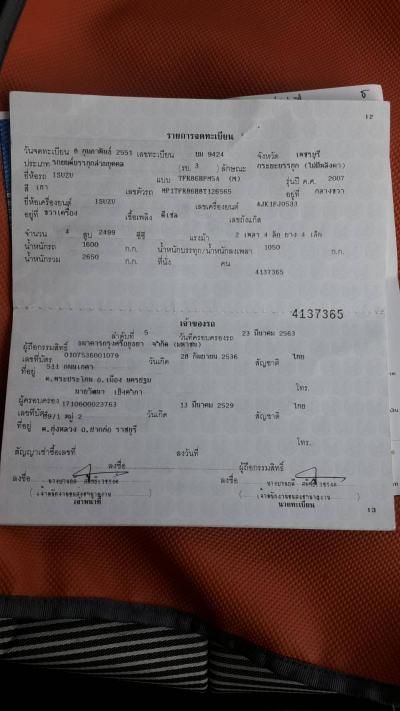 12
รายการจดทะเบียน
วันจดทะเบียน 8 กุมภาพันธ์ 2551 เลขทะเบียน บม 9424 จังหวัด เพชรบุรี
ประเภท รถยนต์บรรทุกส่วนบุคคล (รย. 3 ) ลักษณะ กระบะบรรทุก (ไม่มีหลังคา)
ยี่ห้อรถ ISUZU แบบ TFR86BPM5A (M) รุ่นปี ค.ศ. 2007
สี เทา เลขตัวรถ อยู่ที่ กลางขวา
ยี่ห้อเครื่องยนต์ ISUZU เลขเครื่องยนต์ 4JK1FJ0533
อยู่ที่ ขวาเครื่อง เชื้อเพลิง ดีเซล เลขถังแก๊ส
จำนวน 4 สูบ 2499 ซีซี แรงม้า 2 เพลา 4 ล้อ ยาง 4 เส้น
น้ำหนักรถ 1600 ก.ก. น้ำหนักบรรทุก/น้ำหนักลงเพลา 1050 ก.ก.
น้ำหนักรวม 2650 ก.ก. ที่นั่ง คน
4137365
4137365
เจ้าของรถ
ลำดับที่ 5 วันที่ครอบครองรถ 23 มีนาคม 2563
ผู้ถือกรรมสิทธิ์ ธนาคารกรุงศรีอยุธยา จำกัด (มหาชน)
เลขที่บัตร 0107536001079 วันเกิด 28 กันยายน 2536 สัญชาติ ไทย
ที่อยู่ 511 ถนนเทศา
ต.พระประโทน อ.เมือง นครปฐม โทร.
ผู้ครอบครอง นายวัฒนา
เลขที่บัตร 1710600023763 วันเกิด 13 มีนาคม 2529 สัญชาติ ไทย
ที่อยู่ หมู่ 2
ต.ทุ่งหลวง อ.ปากท่อ ราชบุรี
โทร.
สัญญาเช่าซื้อเลขที่ ลงวันที่
ลงชื่อ ผู้ถือกรรมสิทธิ์
ลงชื่อ ลงชื่อ
เจ้าหน้าที่ นายทะเบียน
13